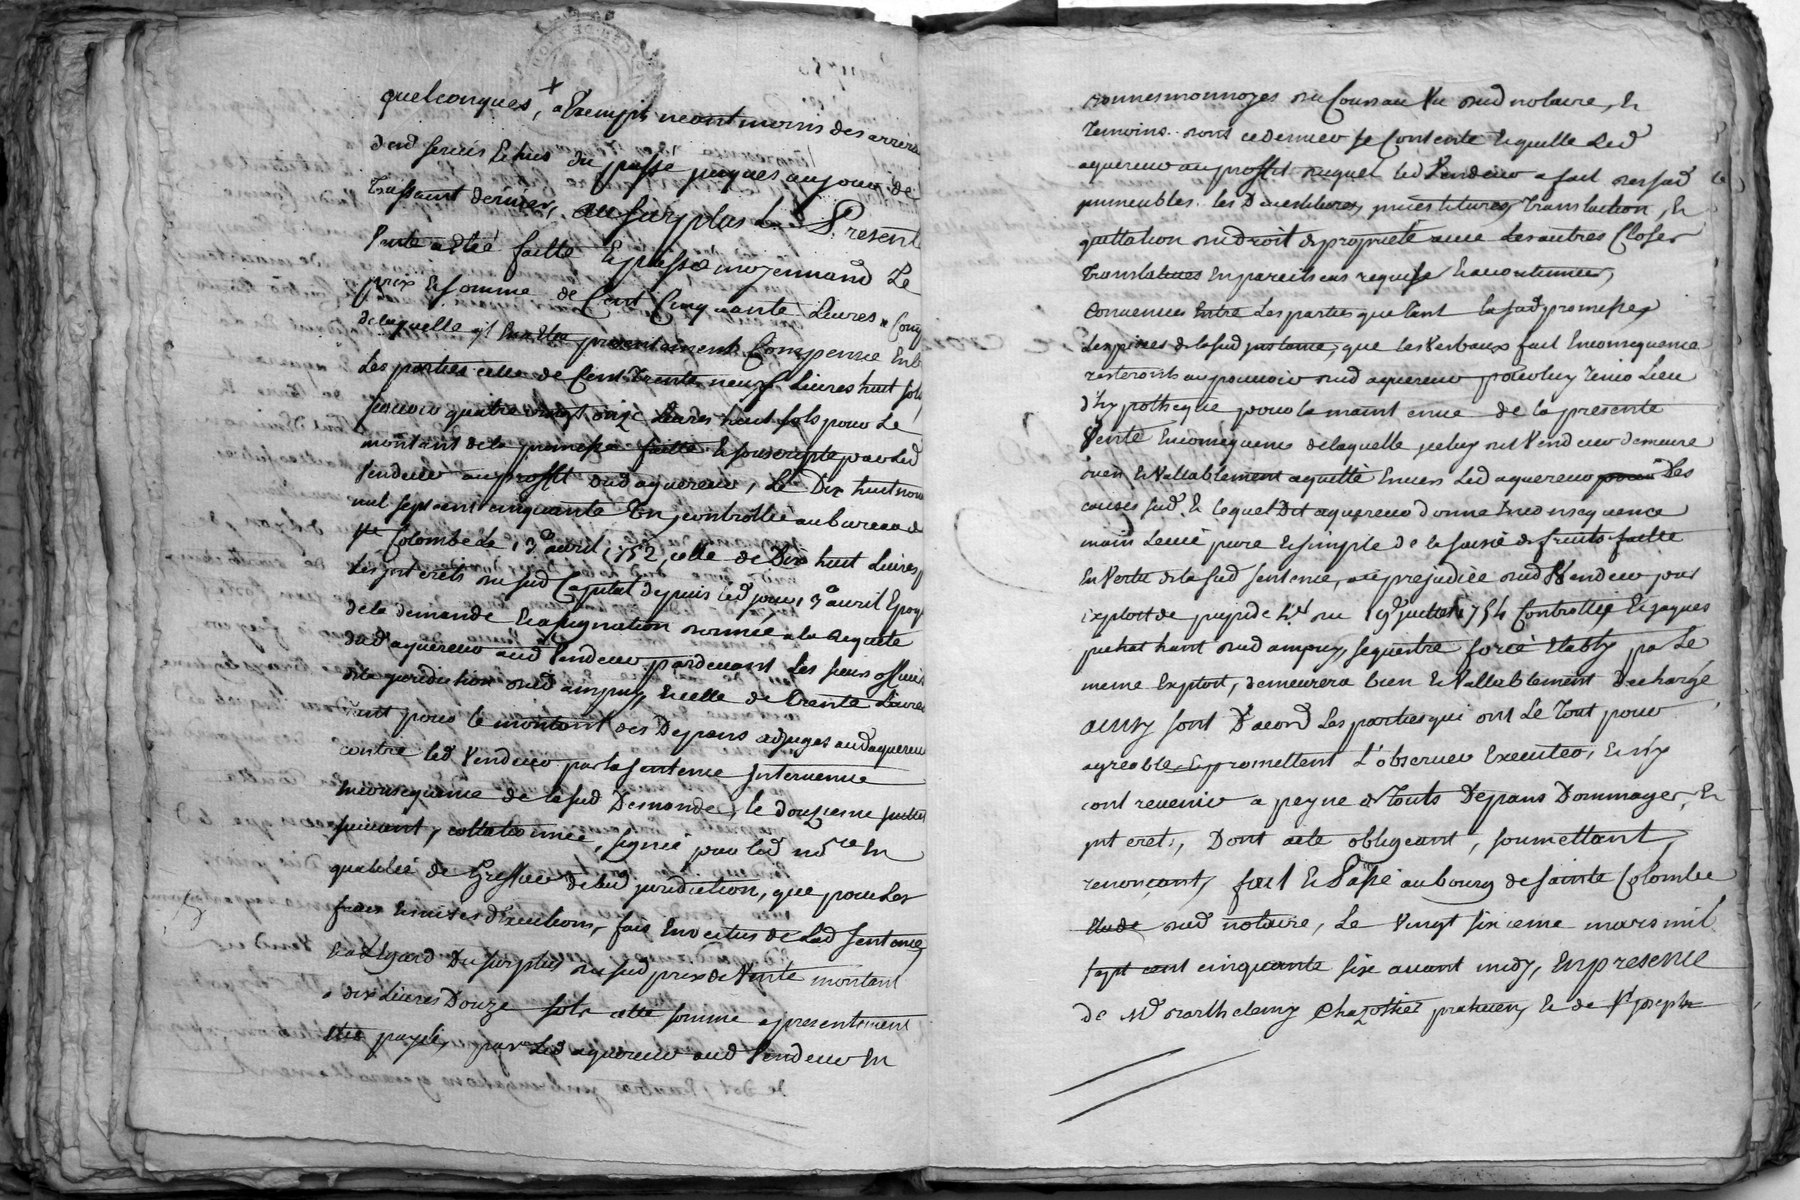 quelconques, + a Exempt neantmoins des arrera
dud servis Echus du passé jusques au jour de
Toussaint dernier, au surplus La Present
Vente a Eté faitte Et passée moyennand Le
prix Et somme de Cent Cinquante Livres
de laquelle presentement Compensée Entre
Les parties celle de Cent Trente neuf Livres huit sols
scavoir quatre vingt onze Livres huit sols pour Le
montant de la promesse faitte Et souscripte par Led
Vendeur au proffit dud aquereur, Le Dix huit nov
mil sept cent cinquante Un, controllée au bureau de
Ste Colombe le 13e avril 1752, celle de Dix huit Livres p
Les jnterets du sud Capital depuis led jour 13e avril Epoq
de la demande Et assignation donnée a la Requete
dud aquereur aud Vendeur pardevant Les sieurs officier
de la juridiction dud ampuy, Et celle de Trente Livres
pour le montant des Depans adjuges aud aquereur
contre led Vendeur par la sentence Intervenue
En consequence de la sud Demande, le douzieme juillet
suivant, collationnée, signée par led nore En
qualité de Greffier de lad juridiction, que pour Les
frais Et mises d'Execution, fais En vertus de Lad sentence
Et a L'Egard Du surplus du sud prix de Vente montant
a dix Livres Douze sols cette somme a presentement
Eté payée, par Led aquereur aud Vendeur En
bonnes monnoyes du Cours au Vu dud notaire, Et
Temoins dont ce dernier se Contente Et quitte Led
aquereur au proffit duquel led Vendeur a fait dessud
jmmeubles les Devestitures, jnvestitures, Translation, Et
quittation du Droit de proprieté avec Les autres Closes
Translatives En pareil cas requise Et accoutumée,
Convenue Entre Les parties que Tant La sud promesse,
Les pieces de la sud jnstance, que les Verbaux fait En consequence
resteront au pouvoir dud aquereur pour luy Tenir Lieu
d'hypotheque pour la maintenue de la presente
Vente En consequence de laquelle jceluy sud Vendeur demeure
bien Et Vallablement aquitté Envers Led aquereur Des
causes sud. Et lequel Dit aquereur donne En consequence
main Levée pure Et simple de la saisie de fruits faitte
En Vertu de la sud sentence, au prejudice dud Vendeur par
Exploit de du 19e juillet 1754 Controllé Et jaques
dud ampuy, sequestre forcé Etably par Le
meme Exploit, demeurera bien Et Vallablement Dechargé
ainsy sont D'acord Les parties qui ont Le Tout pour
agreable, Et promettent L'observer Executer, Et n'y
contrevenir a peyne de Touts Depans Dommages, Et
jnterets, Dont acte obligeant, soumettant,
renonçant, fait Et Passé au bourg de sainte Colombe
Etude dud notaire, Le Vingt sixieme mars mil
sept cent cinquante six avant midy, En presence
de Mr Barthelemy Chazottier praticien, Et de Sr joseph